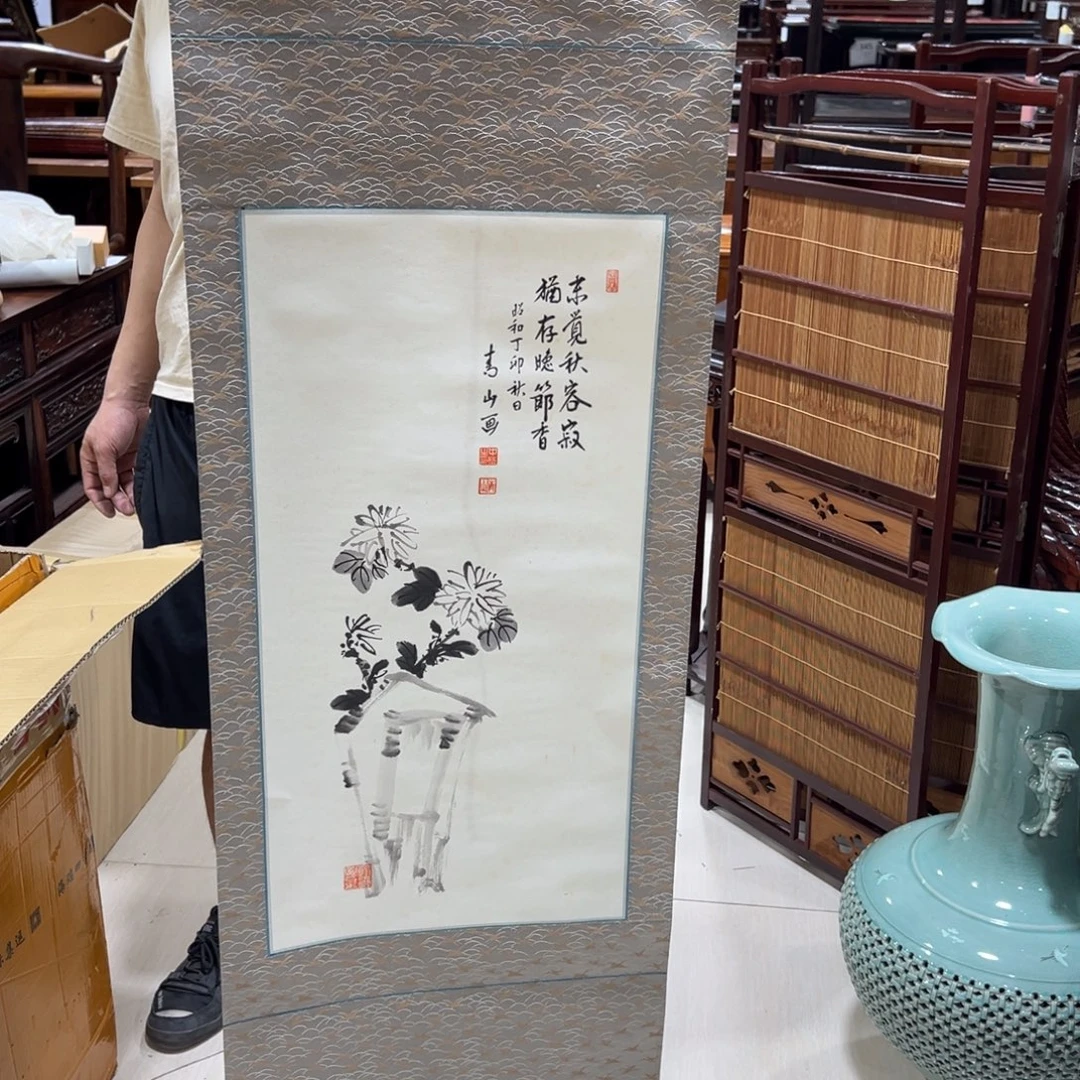 未覺秋容寂
猶存晚節香
昭和丁卯秋日
青山画